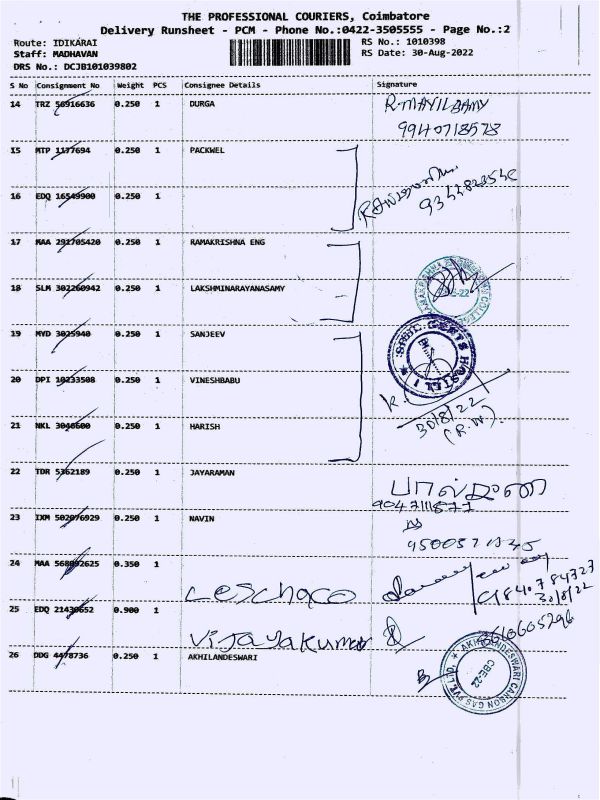 THE PROFESSIONAL COURIERS, Coimbatore
Delivery Runsheet - PCM - Phone No.:0422-3505555 - Page No.:2
Route: IDIKARAI
Staff: MADHAVAN
DRS No.: DCJB101039802
RS No.: 1010398
RS Date: 30-Aug-2022
S No Consignment No Weight PCS Consignee Details Signature
14 TRZ 0.250 1 DURGA R.MAYILSAMY
9940718578
15 MTP 1177694 0.250 1 PACKWEL
16 EDQ 16549900 0.250 1
17 MAA 292705420 0.250 1 RAMAKRISHNA ENG
18 SLM 302260942 0.250 1 LAKSHMINARAYANASAMY
19 MYD 3025940 0.250 1 SANJEEV
20 DPI 10233508 0.250 1 VINESHBABU
30/8/22
21 NKL 0.250 1 HARISH
(R.W.)
22 TDR 5362189 0.250 1 JAYARAMAN
23 IXM 502076929 0.250 1 NAVIN
24 MAA 0.350 1 Leschaco
9840784727
30/8/22
25 EDQ 0.900 1 Vijayakumar
26 DDG 4478736 0.250 1 AKHILANDESWARI
CBE-22